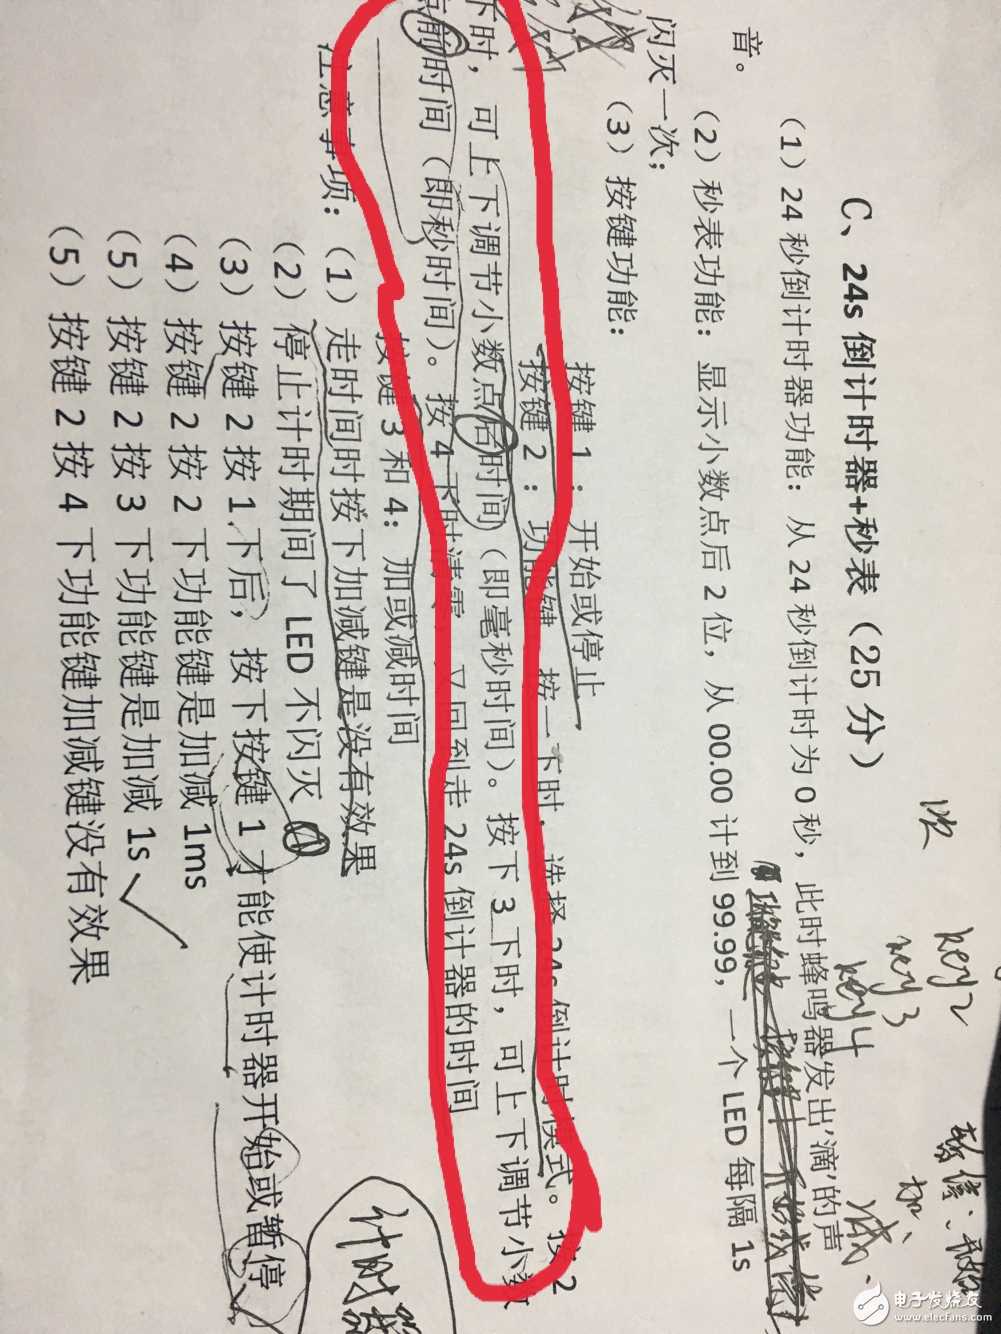 C、24s 倒计时器+秒表（25 分）
（1）24 秒倒计时器功能：从 24 秒倒计时为 0 秒，此时蜂鸣器发出‘滴’的声
音。
（2）秒表功能：显示小数点后 2 位，从 00.00 计到 99.99，一个 LED 每隔 1s
闪灭一次；
（3）按键功能：
按键 1：开始或停止
按键 2：功能键，按一下时，选择 24s 倒计时模式。按 2
下时，可上下调节小数点后时间（即毫秒时间）。按下 3 下时，可上下调节小数
点前时间（即秒时间）。按 4 下时清零，又回到走 24s 倒计器的时间
按键 3 和 4：加或减时间
注意事项：（1）走时间时按下加减键是没有效果
（2）停止计时期间了 LED 不闪灭
（3）按键 2 按 1 下后，按下按键 1 才能使计时器开始或暂停
（4）按键 2 按 2 下功能键是加减 1ms
（5）按键 2 按 3 下功能键是加减 1s
（5）按键 2 按 4 下功能键加减键没有效果
key2
key3
key4
暂停、开始
加、
减、
计时器
电子发烧友
www.elecfans.com